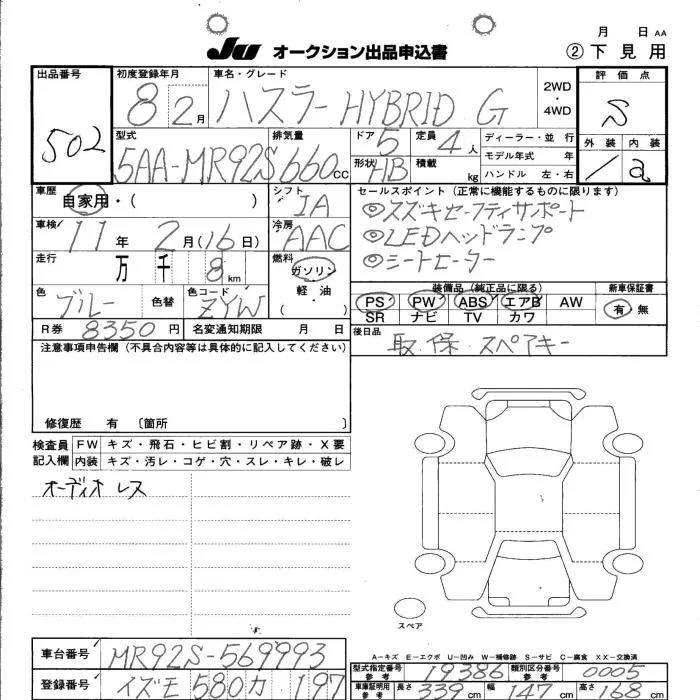 月 日 AA
JU オークション出品申込書 ② 下見用
出品番号 502
初度登録年月 8 2月
車名・グレード ハスラー HYBRID G
2WD・4WD
評価点 S
外装 1 内装 a
型式 5AA-MR92S
排気量 660cc
ドア 5 定員 4人
形状 HB 積載 kg
ディーラー・並行
モデル年式 年
ハンドル 左・右
車歴 自家用・( )
シフト IA
車検 11年 2月(16日)
冷房 AAC
走行 万 千 8km
燃料 ガソリン 軽・油 ( )
色 ブルー 色替 色コード ZYW
R券 8350円 名変通知期限 月 日
セールスポイント(正常に機能するものに限ります)
◎スズキセーフティサポート
◎LEDヘッドランプ
◎シートヒーター
装備品(純正品に限る) 新車保証書
PS PW ABS エアB AW 有 無
SR ナビ TV カワ
後日品 取.保.スペアキー
注意事項申告欄(不具合内容等は具体的に記入してください)
修復歴 有 〔箇所 〕
検査員記入欄
FW キズ・飛石・ヒビ割・リペア跡・X要
内装 キズ・汚レ・コゲ・穴・スレ・キレ・破レ
オーディオレス
スペア
A-キズ E-エクボ U-凹み W-補修跡 S-サビ C-腐食 XX-交換済
車台番号 MR92S-569993
登録番号 イズモ 580 カ 197
型式指定番号 参考 19386 類別区分番号 参考 0005
車庫証明用 参考 長さ 339cm 幅 147cm 高さ 168cm